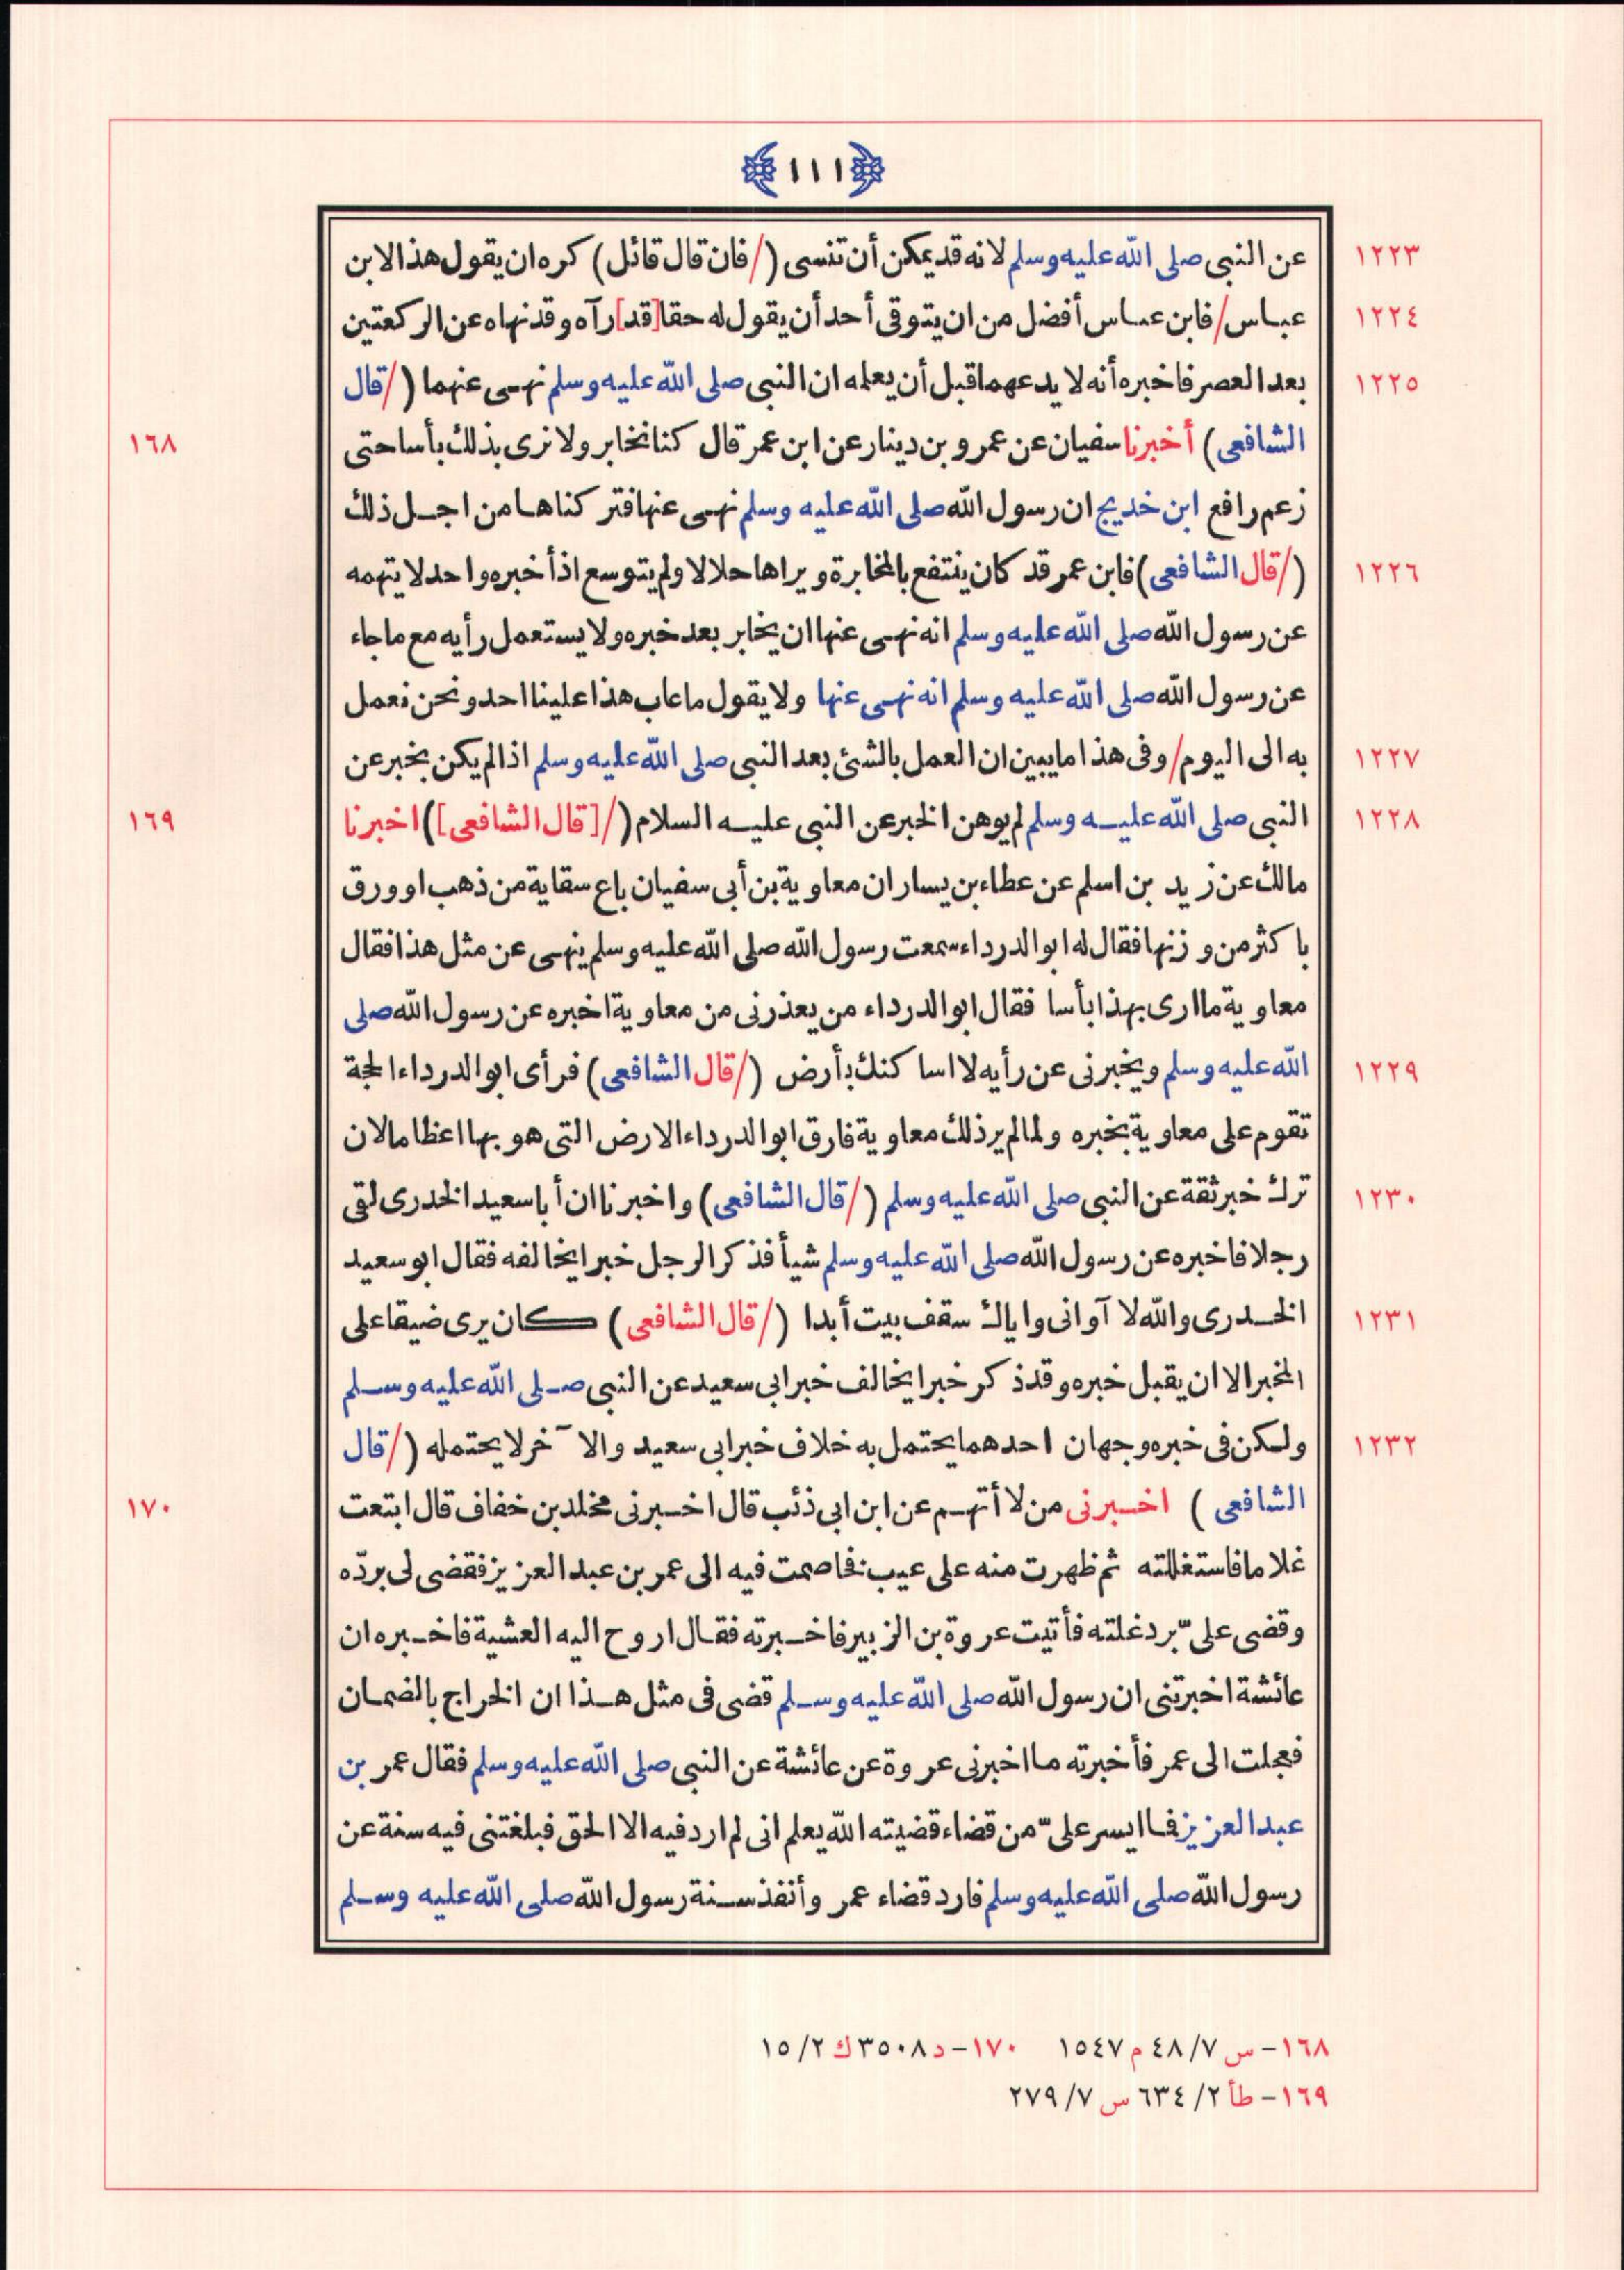 ﴿١١١﴾
١٢٢٣ عن النبى صلى الله عليه وسلم لانه قد يمكن أن تنسى (/فان قال قائل) كره ان يقول هذا لابن
١٢٢٤ عباس/فابن عباس أفضل من ان يتوقى أحد أن يقول له حقا[قد]رآه وقد نهاه عن الركعتين
١٢٢٥ بعد العصر فاخبره أنه لا يدعهما قبل أن يعلمه ان النبى صلى الله عليه وسلم نهى عنهما (/قال
الشافعى) أخبرنا سفيان عن عمرو بن دينار عن ابن عمر قال كنا نخابر ولا نرى بذلك بأسا حتى ١٦٨
زعم رافع ابن خديج ان رسول الله صلى الله عليه وسلم نهى عنها فتركناها من اجل ذلك
١٢٢٦ (/قال الشافعى) فابن عمر قد كان ينتفع بالمخابرة ويراها حلالا ولم يتوسع اذ أخبره واحد لا يتهمه
عن رسول الله صلى الله عليه وسلم انه نهى عنها ان يخابر بعد خبره ولا يستعمل رأيه مع ما جاء
عن رسول الله صلى الله عليه وسلم انه نهى عنها ولا يقول ما عاب هذا علينا احد ونحن نعمل
١٢٢٧ به الى اليوم/وفى هذا ما يبين ان العمل بالشئ بعد النبى صلى الله عليه وسلم اذا لم يكن بخبر عن
١٢٢٨ النبى صلى الله عليه وسلم لم يوهن الخبر عن النبى عليه السلام (/[قال الشافعى]) اخبرنا ١٦٩
مالك عن زيد بن اسلم عن عطاء بن يسار ان معاوية بن أبى سفيان باع سقاية من ذهب او ورق
باكثر من وزنها فقال له ابو الدرداء سمعت رسول الله صلى الله عليه وسلم ينهى عن مثل هذا فقال
معاوية ما ارى بهذا بأسا فقال ابو الدرداء من يعذرنى من معاوية اخبره عن رسول الله صلى
١٢٢٩ الله عليه وسلم ويخبرنى عن رأيه لا اساكنك بأرض (/قال الشافعى) فرأى ابو الدرداء الحجة
تقوم على معاوية بخبره ولما لم ير ذلك معاوية فارق ابو الدرداء الارض التى هو بها اعظاما لان
١٢٣٠ ترك خبر ثقة عن النبى صلى الله عليه وسلم (/قال الشافعى) واخبرنا ان أبا سعيد الخدرى لقى
رجلا فاخبره عن رسول الله صلى الله عليه وسلم شيأ فذكر الرجل خبرا يخالفه فقال ابو سعيد
١٢٣١ الخدرى والله لا آوانى واياك سقف بيت أبدا (/قال الشافعى) كان يرى ضيقا على
المخبر الا ان يقبل خبره وقد ذكر خبرا يخالف خبر ابى سعيد عن النبى صلى الله عليه وسلم
١٢٣٢ ولكن فى خبره وجهان احدهما يحتمل به خلاف خبر ابى سعيد والا ٓخر لا يحتمله (/قال
الشافعى) اخبرنى من لا أتهم عن ابن ابى ذئب قال اخبرنى مخلد بن خفاف قال ابتعت ١٧٠
غلاما فاستغللته ثم ظهرت منه على عيب فخاصمت فيه الى عمر بن عبد العزيز فقضى لى بردّه
وقضى علىّ برد غلته فأتيت عروة بن الزبير فاخبرته فقال اروح اليه العشية فاخبره ان
عائشة اخبرتنى ان رسول الله صلى الله عليه وسلم قضى فى مثل هذا ان الخراج بالضمان
فعجلت الى عمر فأخبرته ما اخبرنى عروة عن عائشة عن النبى صلى الله عليه وسلم فقال عمر بن
عبد العزيز فما ايسر علىّ من قضاء قضيته الله يعلم انى لم ارد فيه الا الحق فبلغتنى فيه سنة عن
رسول الله صلى الله عليه وسلم فارد قضاء عمر وأنفذ سنة رسول الله صلى الله عليه وسلم
١٦٨- س ٤٨/٧ م ١٥٤٧ ١٧٠- د ٣٥٠٨ ك ١٥/٢
١٦٩- طأ ٦٣٤/٢ س ٢٧٩/٧